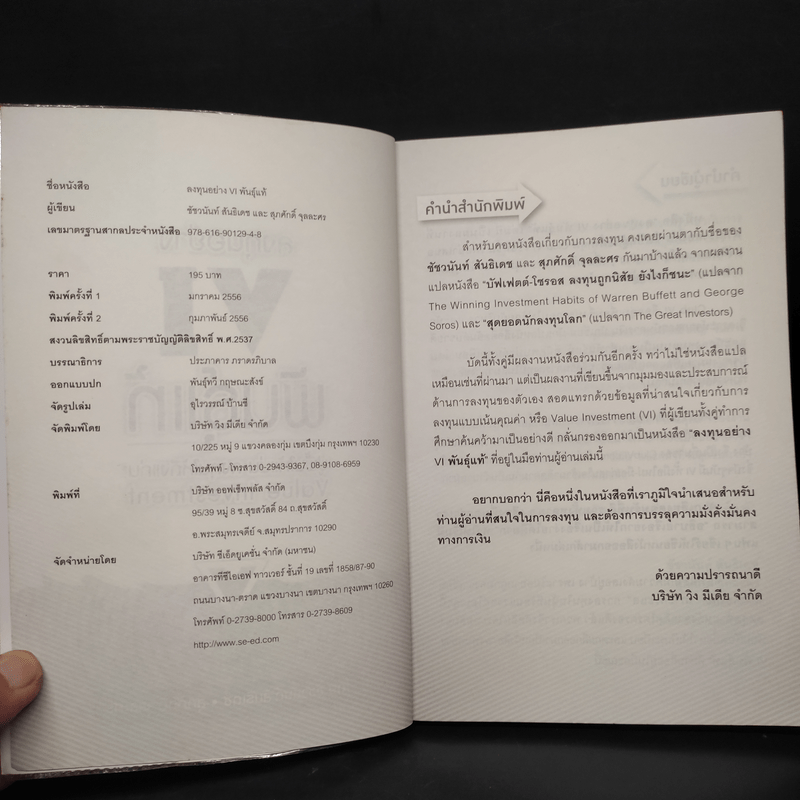 ชื่อหนังสือ ลงทุนอย่าง VI พันธุ์แท้
ผู้เขียน ชัชวนันท์ สันธิเดช และ สุภศักดิ์ จุลละศร
เลขมาตรฐานสากลประจำหนังสือ 978-616-90129-4-8
ราคา 195 บาท
พิมพ์ครั้งที่ 1 มกราคม 2556
พิมพ์ครั้งที่ 2 กุมภาพันธ์ 2556
สงวนลิขสิทธิ์ตามพระราชบัญญัติลิขสิทธิ์ พ.ศ.2537
บรรณาธิการ ประภาคาร ภราดรภิบาล
ออกแบบปก พันธุ์ทวี กฤษณะสังข์
จัดรูปเล่ม อุไรวรรณ์ บ้านชี
จัดพิมพ์โดย บริษัท วิง มีเดีย จำกัด
10/225 หมู่ 9 แขวงคลองกุ่ม เขตบึงกุ่ม กรุงเทพฯ 10230
โทรศัพท์ - โทรสาร 0-2943-9367, 08-9108-6959
พิมพ์ที่ บริษัท ออฟเซ็ทพลัส จำกัด
95/39 หมู่ 8 ซ.สุขสวัสดิ์ 84 ถ.สุขสวัสดิ์
อ.พระสมุทรเจดีย์ จ.สมุทรปราการ 10290
จัดจำหน่ายโดย บริษัท ซีเอ็ดยูเคชั่น จำกัด (มหาชน)
อาคารทีซีไอเอฟ ทาวเวอร์ ชั้นที่ 19 เลขที่ 1858/87-90
ถนนบางนา-ตราด แขวงบางนา เขตบางนา กรุงเทพฯ 10260
โทรศัพท์ 0-2739-8000 โทรสาร 0-2739-8609
http://www.se-ed.com
คำนำสำนักพิมพ์
สำหรับคอหนังสือเกี่ยวกับการลงทุน คงเคยผ่านตากับชื่อของ
ชัชวนันท์ สันธิเดช และ สุภศักดิ์ จุลละศร กันมาบ้างแล้ว จากผลงาน
แปลหนังสือ "บัฟเฟตต์-โซรอส ลงทุนถูกนิสัย ยังไงก็ชนะ" (แปลจาก
The Winning Investment Habits of Warren Buffett and George
Soros) และ "สุดยอดนักลงทุนโลก" (แปลจาก The Great Investors)
บัดนี้ทั้งคู่มีผลงานหนังสือร่วมกันอีกครั้ง ทว่าไม่ใช่หนังสือแปล
เหมือนเช่นที่ผ่านมา แต่เป็นผลงานที่เขียนขึ้นจากมุมมองและประสบการณ์
ด้านการลงทุนของตัวเอง สอดแทรกด้วยข้อมูลที่น่าสนใจเกี่ยวกับการ
ลงทุนแบบเน้นคุณค่า หรือ Value Investment (VI) ที่ผู้เขียนทั้งคู่ทำการ
ศึกษาค้นคว้ามาเป็นอย่างดี กลั่นกรองออกมาเป็นหนังสือ "ลงทุนอย่าง
VI พันธุ์แท้" ที่อยู่ในมือท่านผู้อ่านเล่มนี้
อยากบอกว่า นี่คือหนึ่งในหนังสือที่เราภูมิใจนำเสนอสำหรับ
ท่านผู้อ่านที่สนใจในการลงทุน และต้องการบรรลุความมั่งคั่งมั่นคง
ทางการเงิน
ด้วยความปรารถนาดี
บริษัท วิง มีเดีย จำกัด